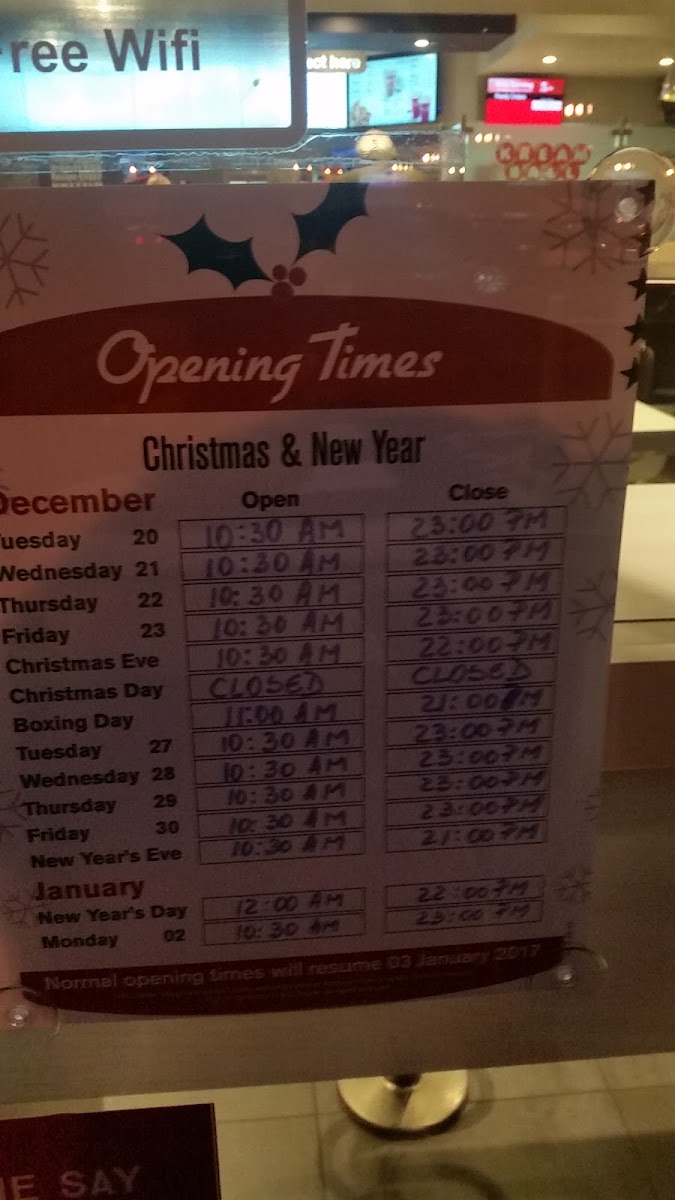 ree Wifi
Opening Times
Christmas & New Year
December Open Close
uesday 20 10:30 AM 23:00 PM
Wednesday 21 10:30 AM 23:00 PM
Thursday 22 10:30 AM 23:00 PM
Friday 23 10:30 AM 23:00 PM
Christmas Eve 10:30 AM 22:00 PM
Christmas Day CLOSED CLOSED
Boxing Day 11:00 AM 21:00 PM
Tuesday 27 10:30 AM 23:00 PM
Wednesday 28 10:30 AM 23:00 PM
Thursday 29 10:30 AM 23:00 PM
Friday 30 10:30 AM 23:00 PM
New Year's Eve 10:30 AM 21:00 PM
January
New Year's Day 12:00 AM 22:00 PM
Monday 02 10:30 AM 23:00 PM
Normal opening times will resume 03 January 2017
SAY